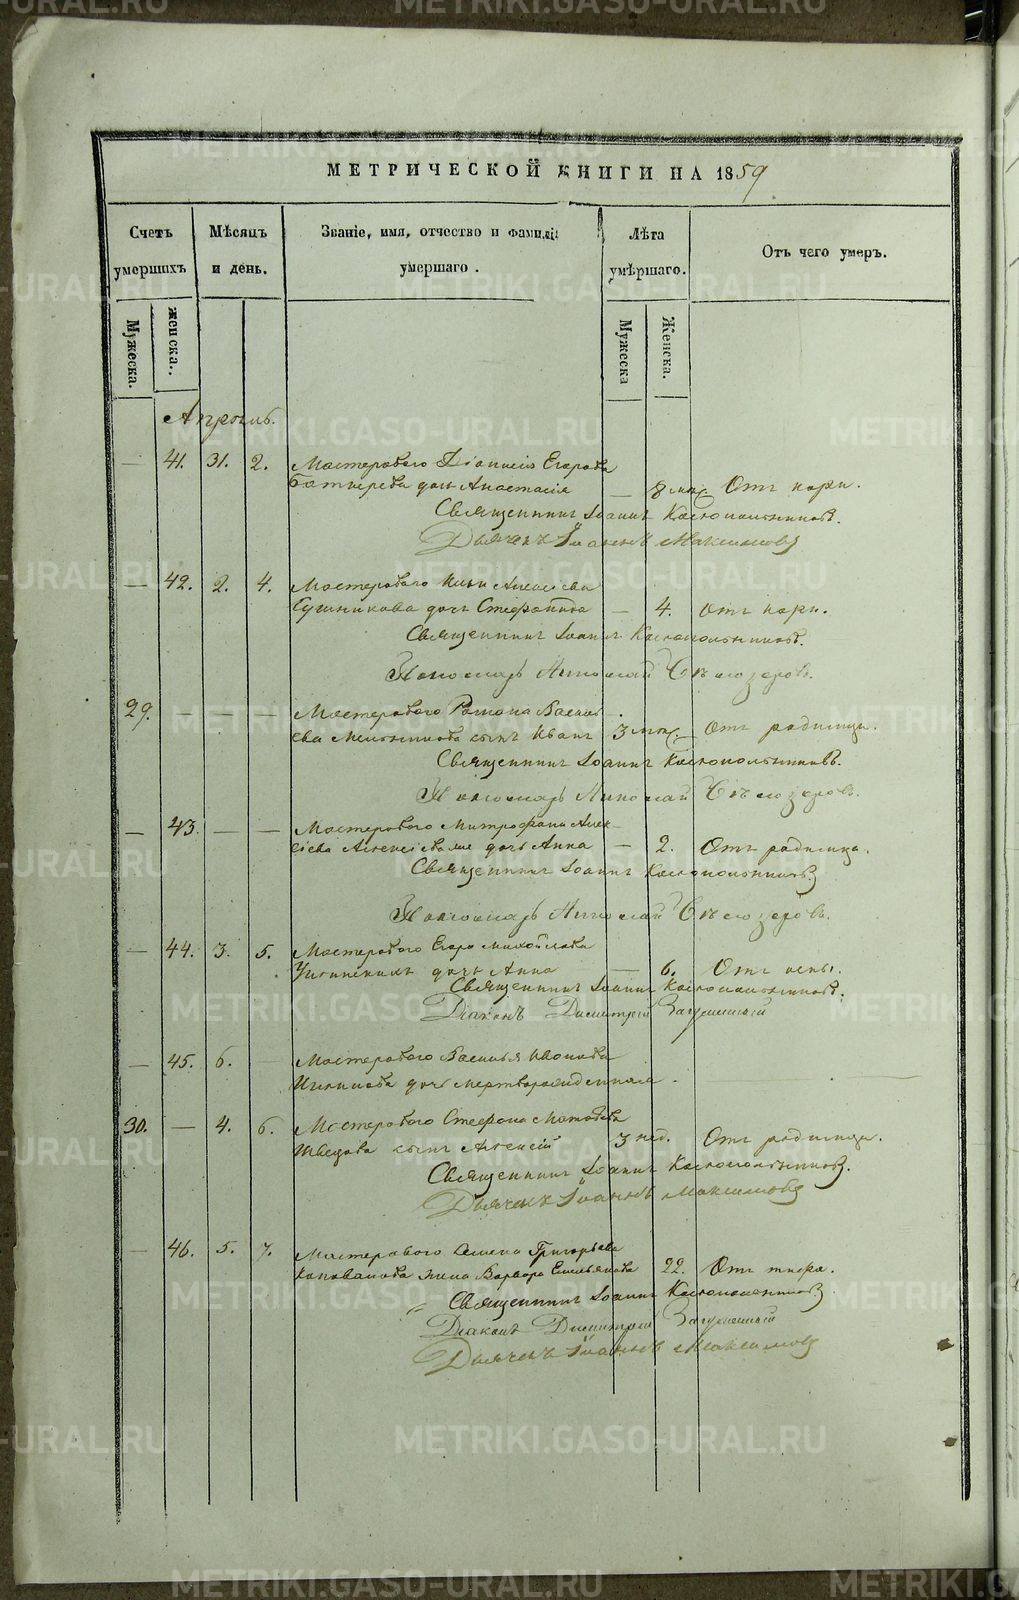 МЕТРИЧЕСКОЙ КНИГИ НА 1859
Счетъ умершихъ
Мѣсяцъ и день.
Званіе, имя, отчество и фамилія умершаго.
Лѣта умѣршаго.
Отъ чего умеръ.
Мужеска.
женска.
Мужеска
Женска.
Апрѣль.
— 41. 31. 2. Мастероваго Діонисія Егорова
дочь Анастасія — 8 мѣс. Отъ кори.
Священникъ Іоаннъ
Дьячекъ Іоаннъ Максимовъ
— 42. 2. 4. Мастероваго Ильи Алексѣева
Сушникова дочь Стефанида — 4. Отъ кори.
Священникъ Іоаннъ
Пономарь Николай Бѣлозеровъ.
29. — — — Мастероваго Романа Василь
ева Мельникова сынъ Иванъ 3 мѣс. — Отъ родимца.
Священникъ Іоаннъ
Пономарь Николай Бѣлозеровъ.
— 43. — — Мастероваго Митрофана Алек
сіева дочь Анна — 2. Отъ родимца.
Священникъ Іоаннъ
Пономарь Николай Бѣлозеровъ.
— 44. 3. 5. Мастероваго Егора Михайлова
дочь Анна — 6. Отъ оспы.
Священникъ Іоаннъ
Діаконъ Димитрій
— 45. 6. — Мастероваго Василья Иванова
дочь мертворожденная.
30. — 4. 6. Мастероваго Стефана Матвѣева
Швецова сынъ Алексій 3 нед. Отъ родимца.
Священникъ Іоаннъ
Дьячекъ Іоаннъ Максимовъ
— 46. 5. 7. Мастероваго Семена Григорьева
Коновалова жена Варвара Емельянова 22. Отъ тифа.
Священникъ Іоаннъ
Діаконъ Димитрій
Дьячекъ Іоаннъ Максимовъ
METRIKI.GASO-URAL.RU